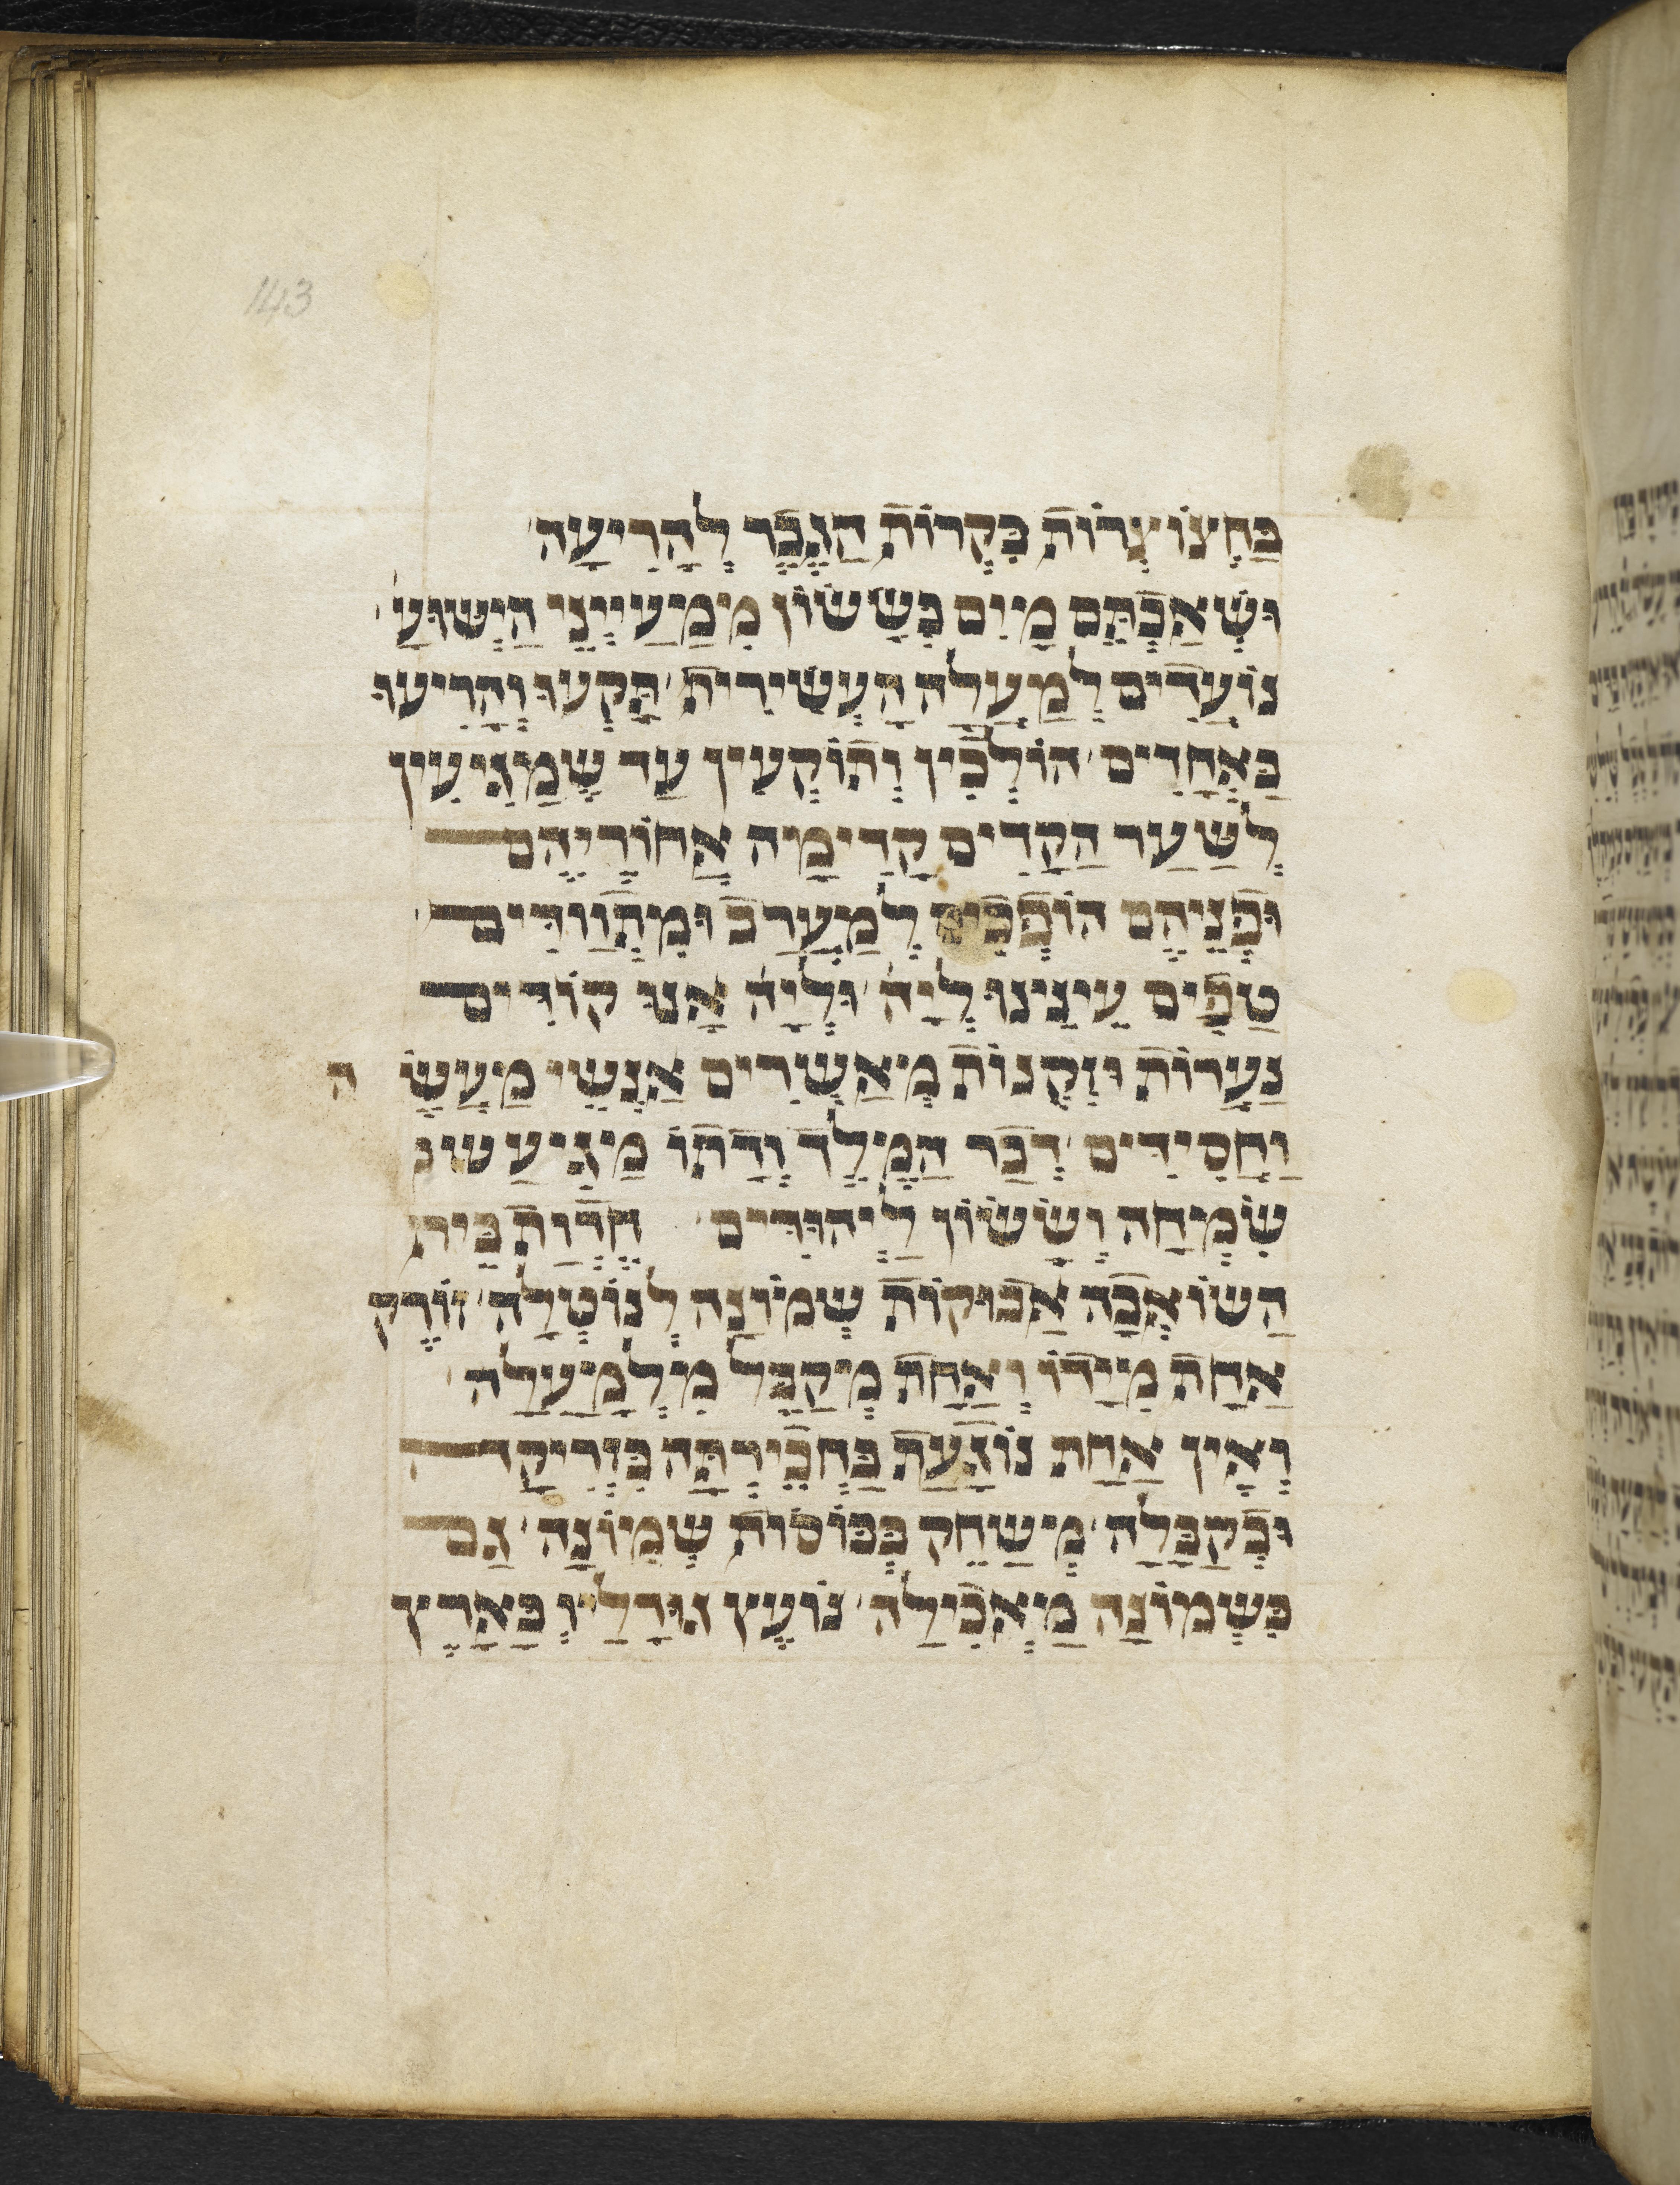 143
בַּחֲצוֹצְרוֹת כִּקְרוֹת הַגֶּבֶר לְהָרִיעָה
וּשְׁאַבְתֶּם מַיִם בְּשָׂשׂוֹן מִמַּעַיְינֵי הַיְשׁוּעַ
נוֹעָדִים לְמַעֲלָה הָעֲשִׂירִית תָּקְעוּ וְהָרִיעוּ
בַּאֲחָדִים הוֹלְכִין וְתוֹקְעִין עַד שֶׁמַּגִּיעִין
לְשַׁעַר הַקָּדִים קָדִימָה אֲחוֹרֵיהֶם
וּפְנֵיהֶם הוֹפְכִים לְמַעֲרָב וּמִתְוַדִּים
טַפִּים עֵינֵינוּ לְיָהּ וּלְיָהּ אָנוּ קוֹדִים
נְעָרוֹת וּזְקֵנוֹת מְאַשְּׁרִים אַנְשֵׁי מַעֲשֶׂה
וַחֲסִידִים דְּבַר הַמֶּלֶךְ וְדָתוֹ מַגִּיעַ שָׁם
שִׂמְחָה וְשָׂשׂוֹן לַיְּהוּדִים חֶדְוַת בֵּית
הַשּׁוֹאֵבָה אֲבוּקוֹת שְׁמוֹנָה לְנוֹטְלָהּ זוֹרֵק
אַחַת מִיָּדוֹ וְאַחַת מְקַבֵּל מִלְמַעְלָה
וְאֵין אַחַת נוֹגַעַת בַּחֲבֵירְתָּהּ בִּזְרִיקָה
וּבְקַבָּלָה מְשַׂחֵק בְּכוֹסוֹת שְׁמוֹנָה גַּם
בִּשְׁמוֹנָה מַאֲכֵילָה נוֹעֵץ גּוּדָלָיו בָּאָרֶץ